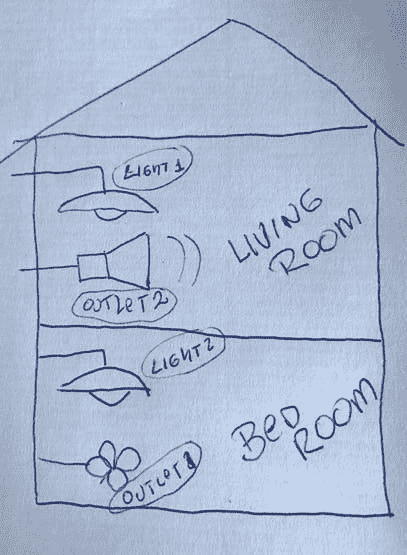 LIGHT 1
LIVING
ROOM
OUTLET 2
LIGHT 2
BED
ROOM
OUTLET 1